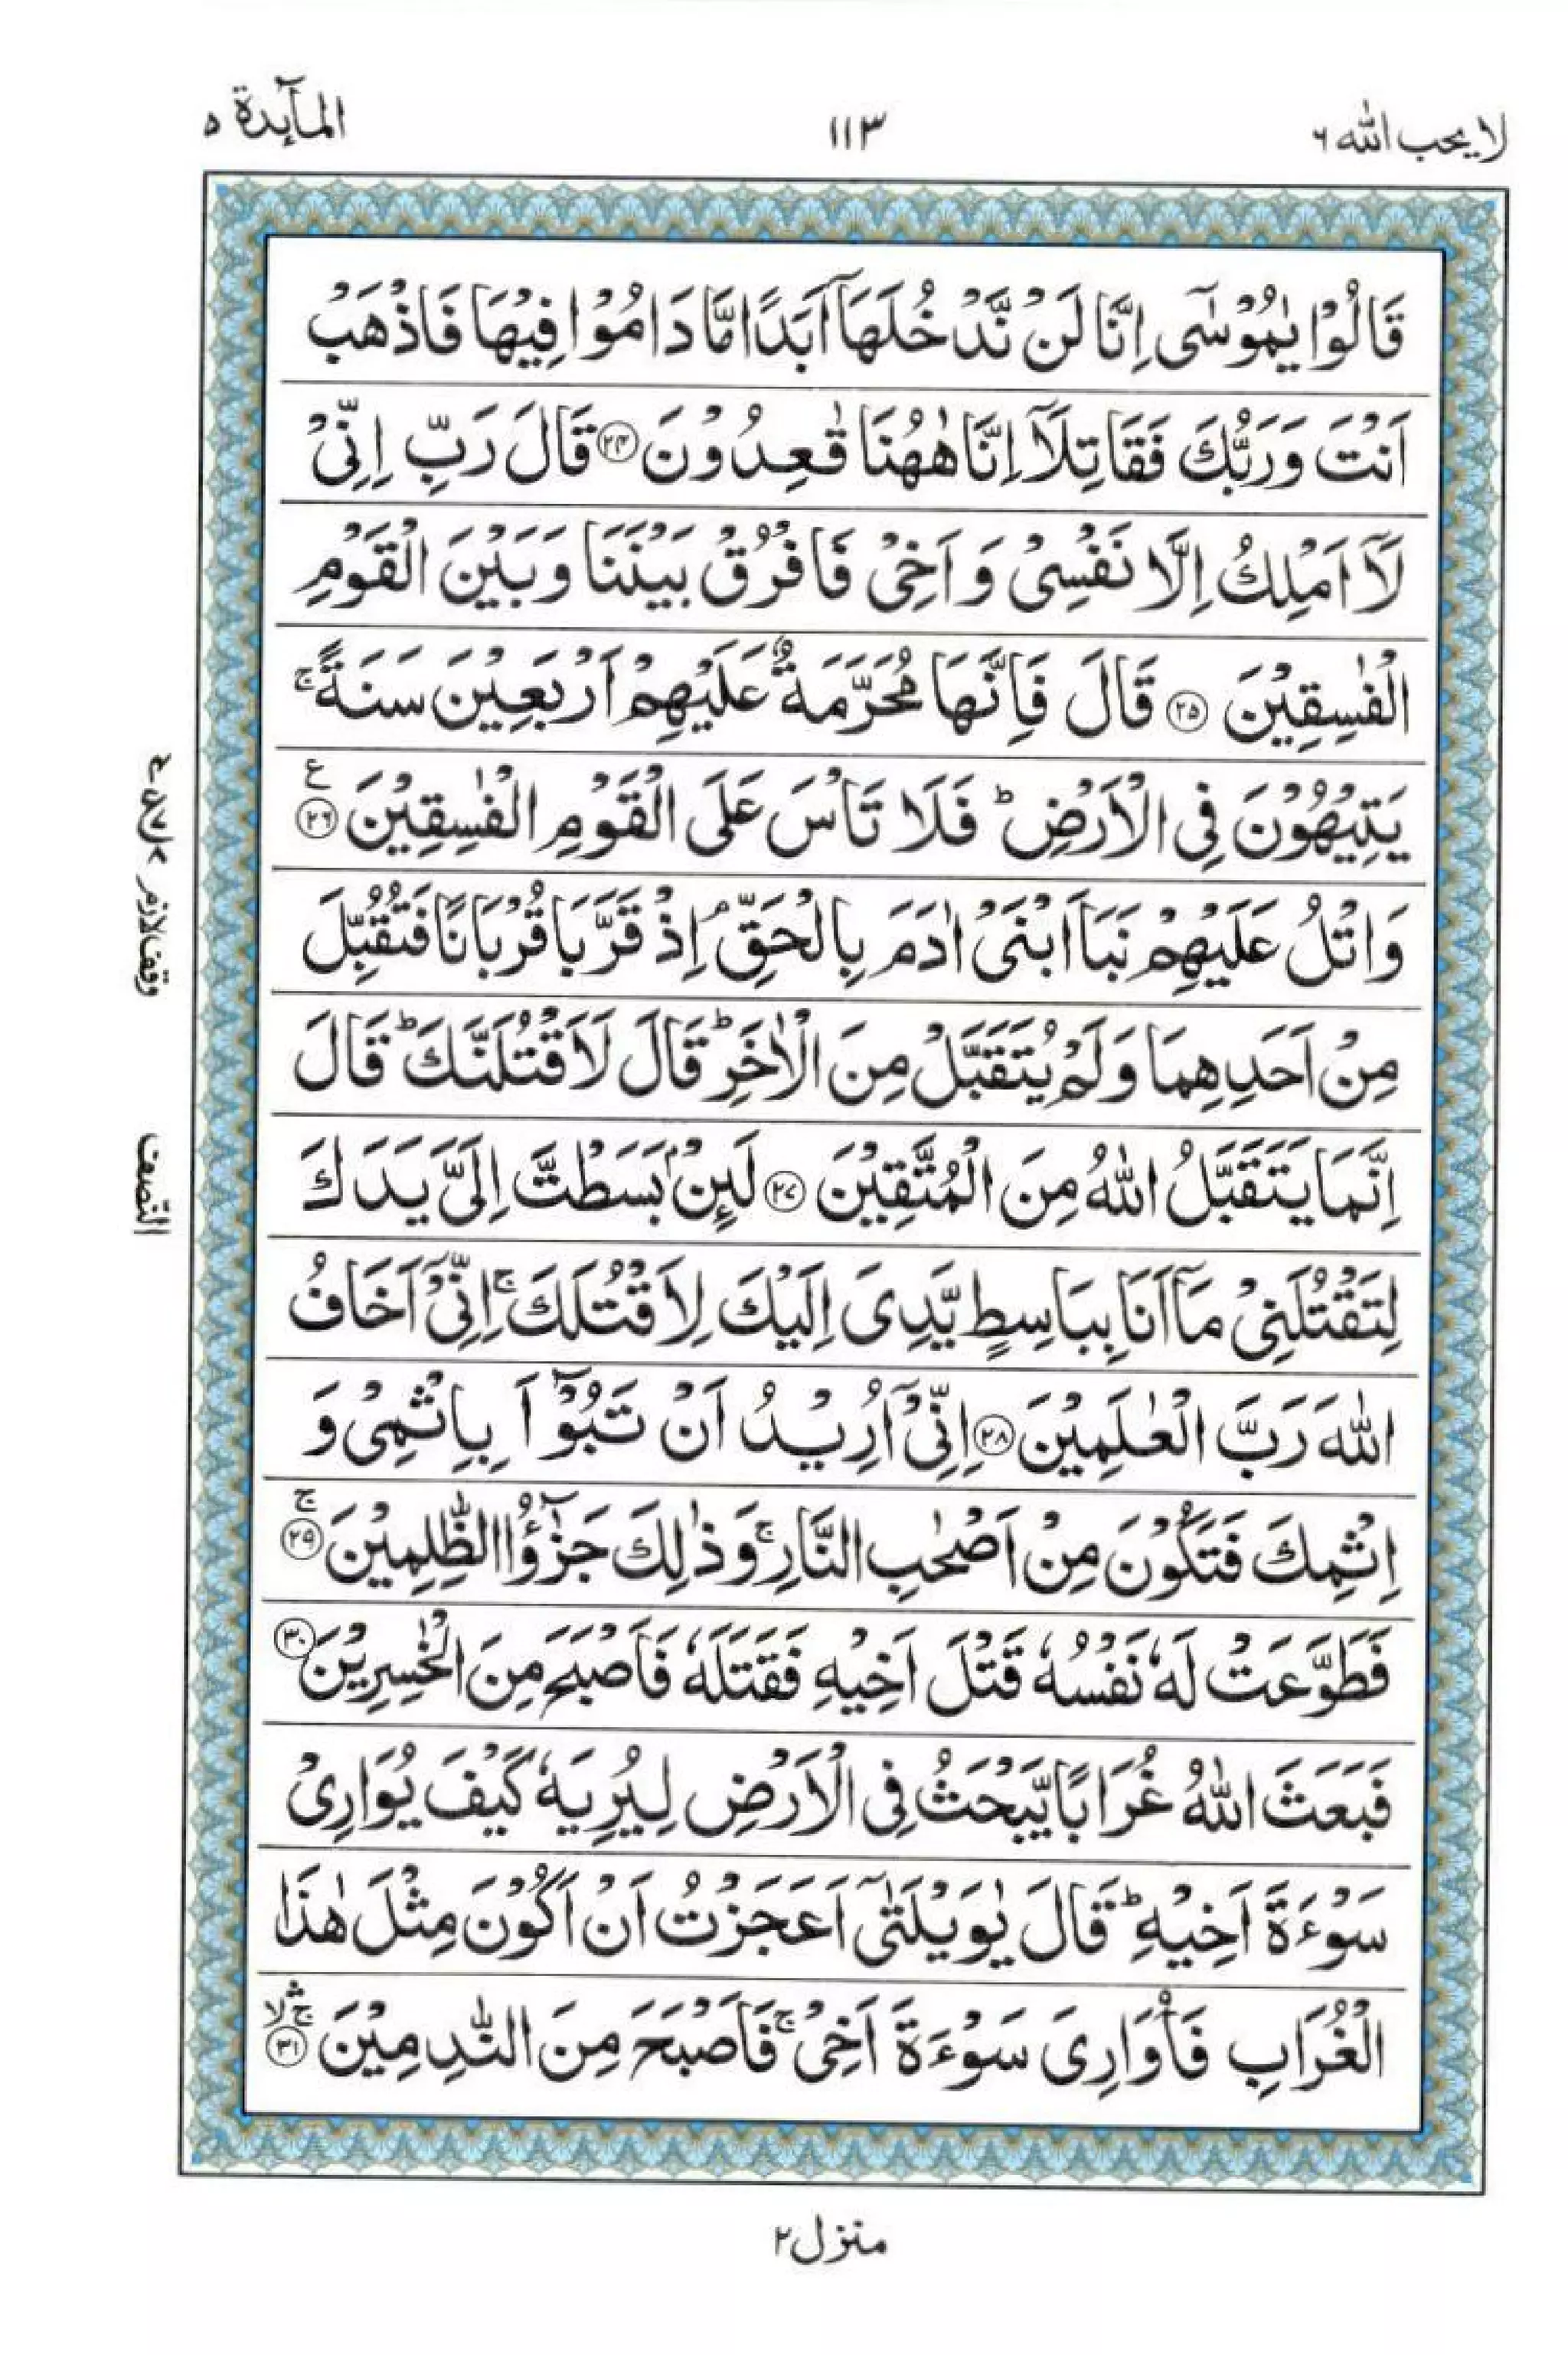 لا يحب الله ٦
١١٣
المآىِٕدة ٥
قَالُوْا يٰمُوْسٰۤى اِنَّا لَنْ نَّدْخُلَهَاۤ اَبَدًا مَّا دَامُوْا فِيْهَا فَاذْهَبْ
اَنْتَ وَرَبُّكَ فَقَاتِلَاۤ اِنَّا هٰهُنَا قٰعِدُوْنَ ﴿٢٤﴾ قَالَ رَبِّ اِنِّيْ
لَاۤ اَمْلِكُ اِلَّا نَفْسِيْ وَ اَخِيْ فَافْرُقْ بَيْنَنَا وَ بَيْنَ الْقَوْمِ
الْفٰسِقِيْنَ ﴿٢٥﴾ قَالَ فَاِنَّهَا مُحَرَّمَةٌ عَلَيْهِمْ اَرْبَعِيْنَ سَنَةً ۚ
يَتِيْهُوْنَ فِي الْاَرْضِ ؕ فَلَا تَاْسَ عَلَى الْقَوْمِ الْفٰسِقِيْنَ ﴿٢٦﴾ ع
وَاتْلُ عَلَيْهِمْ نَبَاَ ابْنَيْ اٰدَمَ بِالْحَقِّ ۘ اِذْ قَرَّبَا قُرْبَانًا فَتُقُبِّلَ
مِنْ اَحَدِهِمَا وَلَمْ يُتَقَبَّلْ مِنَ الْاٰخَرِ ؕ قَالَ لَاَقْتُلَنَّكَ ؕ قَالَ
اِنَّمَا يَتَقَبَّلُ اللّٰهُ مِنَ الْمُتَّقِيْنَ ﴿٢٧﴾ لَىِٕنْۢ بَسَطْتَّ اِلَيَّ يَدَكَ
لِتَقْتُلَنِيْ مَاۤ اَنَا بِبَاسِطٍ يَّدِيَ اِلَيْكَ لِاَقْتُلَكَ ۚ اِنِّيْۤ اَخَافُ
اللّٰهَ رَبَّ الْعٰلَمِيْنَ ﴿٢٨﴾ اِنِّيْۤ اُرِيْدُ اَنْ تَبُوْٓاَ بِاِثْمِيْ وَ
اِثْمِكَ فَتَكُوْنَ مِنْ اَصْحٰبِ النَّارِ ۚ وَ ذٰلِكَ جَزٰٓؤُا الظّٰلِمِيْنَ ﴿٢٩﴾ ۚ
فَطَوَّعَتْ لَهٗ نَفْسُهٗ قَتْلَ اَخِيْهِ فَقَتَلَهٗ فَاَصْبَحَ مِنَ الْخٰسِرِيْنَ ﴿٣٠﴾
فَبَعَثَ اللّٰهُ غُرَابًا يَّبْحَثُ فِي الْاَرْضِ لِيُرِيَهٗ كَيْفَ يُوَارِيْ
سَوْءَةَ اَخِيْهِ ؕ قَالَ يٰوَيْلَتٰۤى اَعَجَزْتُ اَنْ اَكُوْنَ مِثْلَ هٰذَا
الْغُرَابِ فَاُوَارِيَ سَوْءَةَ اَخِيْ ۚ فَاَصْبَحَ مِنَ النّٰدِمِيْنَ ﴿٣١﴾ ۚۛۙ
وقف لازم
النصف
منزل ٢